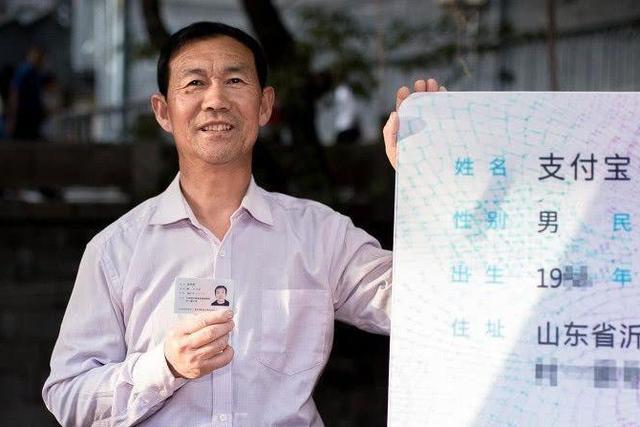 姓名 支付宝
性别 男 民
出生 19 年
住址 山东省沂